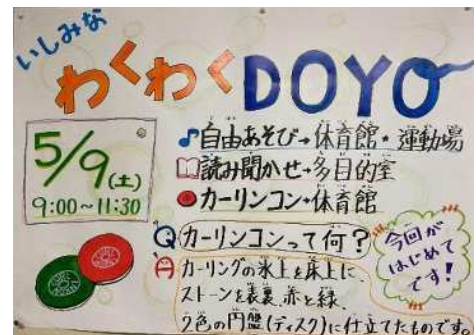 いしみな
わくわくDOYO
5/9(土)
9:00~11:30
自由あそび→体育館・運動場
読み聞かせ→多目的室
カーリンコン→体育館
Qカーリンコンって何?
A カーリングの氷上を床上に、
ストーンを表裏、赤と緑、
2色の円盤(ディスク)に仕立てたものです。
今回が
はじめて
です!